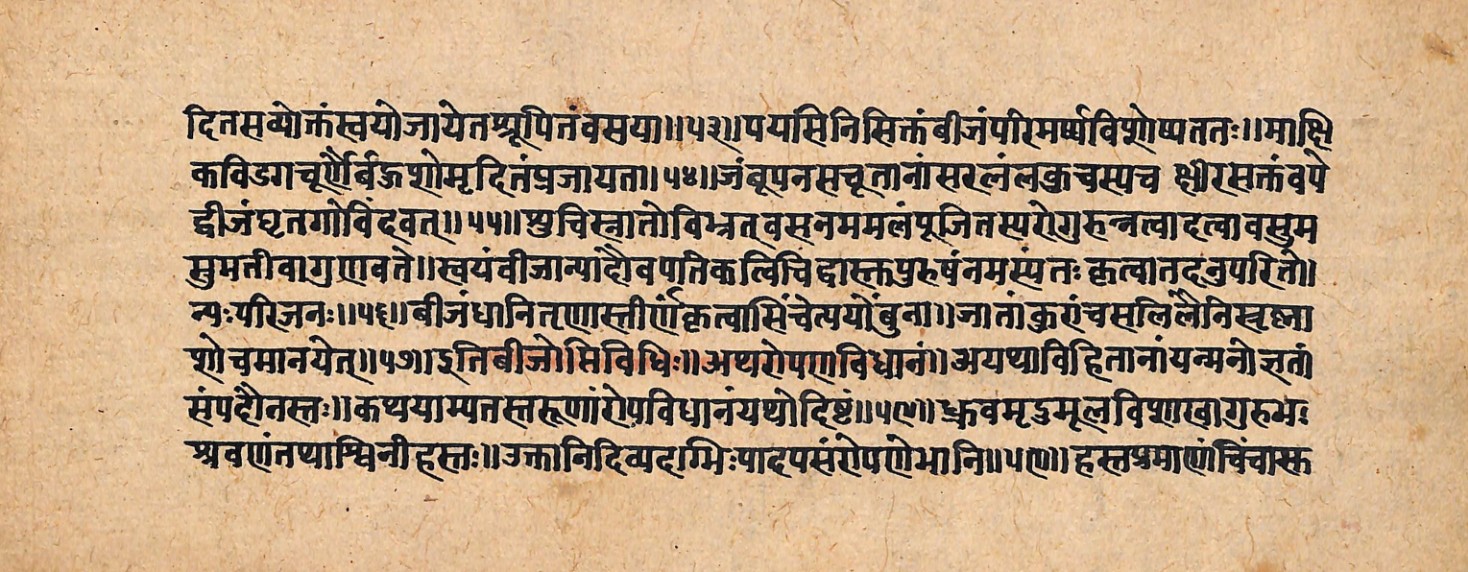 दितसव्योक्तंस्वयोजायेतश्रूपितंवसया॥५३॥पयसिनिसिक्तंबीजंपरिमर्ष्यविशोष्यततः॥माक्षि
कविडगचूर्णैर्बद्रुशोमृदितंप्रजायता॥५४॥जंबूपनसचूतानांसरलंलकुचस्यच क्षीरसक्तंवपे
द्वीजंघृतगोविंदवत्॥५५॥शुचिस्नातोविभ्रत्वसनममलंपूजितस्यरोगुरुन्नत्वादत्वावसुम
सुमतीवागुणवते॥स्वयंवीजान्यादौवपतिकत्विचिद्वास्तुपुरुषंनमस्यंतःकृत्वातदनुपरितो॥
न्यःपरिजनः॥५६॥बीजंधानितृणास्तीर्णंकृत्वासिंचेत्पयोंबुना॥जातांकुरांचसलिलैनिस्तृष्णा
शोचमानयेत्॥५७॥इतिबीजोप्तिविधिः॥अथरोपणविधानं॥अयथाविहितानांयन्मनोज्ञतां
संपदौनस्तः॥कथयाम्यतस्तरूणांरोपविधानंयथोदिष्टं॥५८॥ध्रुवमृडमूलविशाखागुरुभः
श्रवणंतथाश्विनीहस्तः॥उक्तानिदिव्यदृग्भिःपादपसंरोपणेभानि॥५९॥हस्तप्रमाणंचिंचास्त